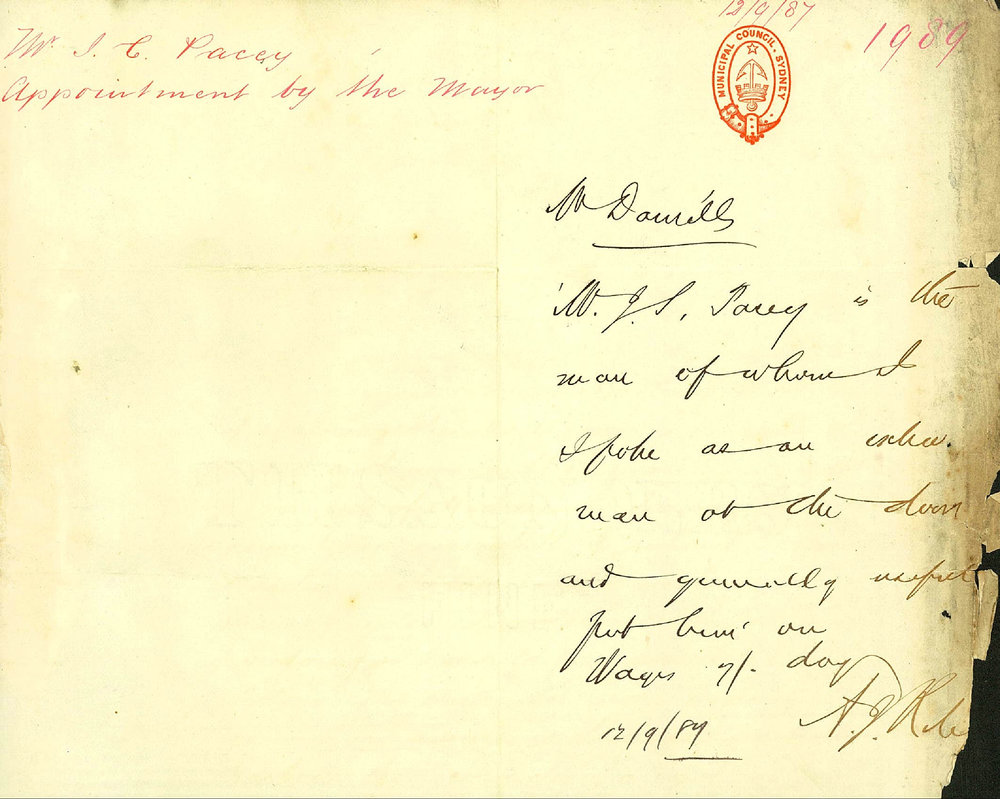 12/9/87
1989
Mr J. C. Pacey
Appointment by the Mayor
MUNICIPAL COUNCIL. SYDNEY
Mr Daniells
Mr. J. S. Pacey is the
man of whom I
spoke as an extra
man at the door
and generally useful
put him on
Wages 7/- day
A. J. Rile
12/9/87